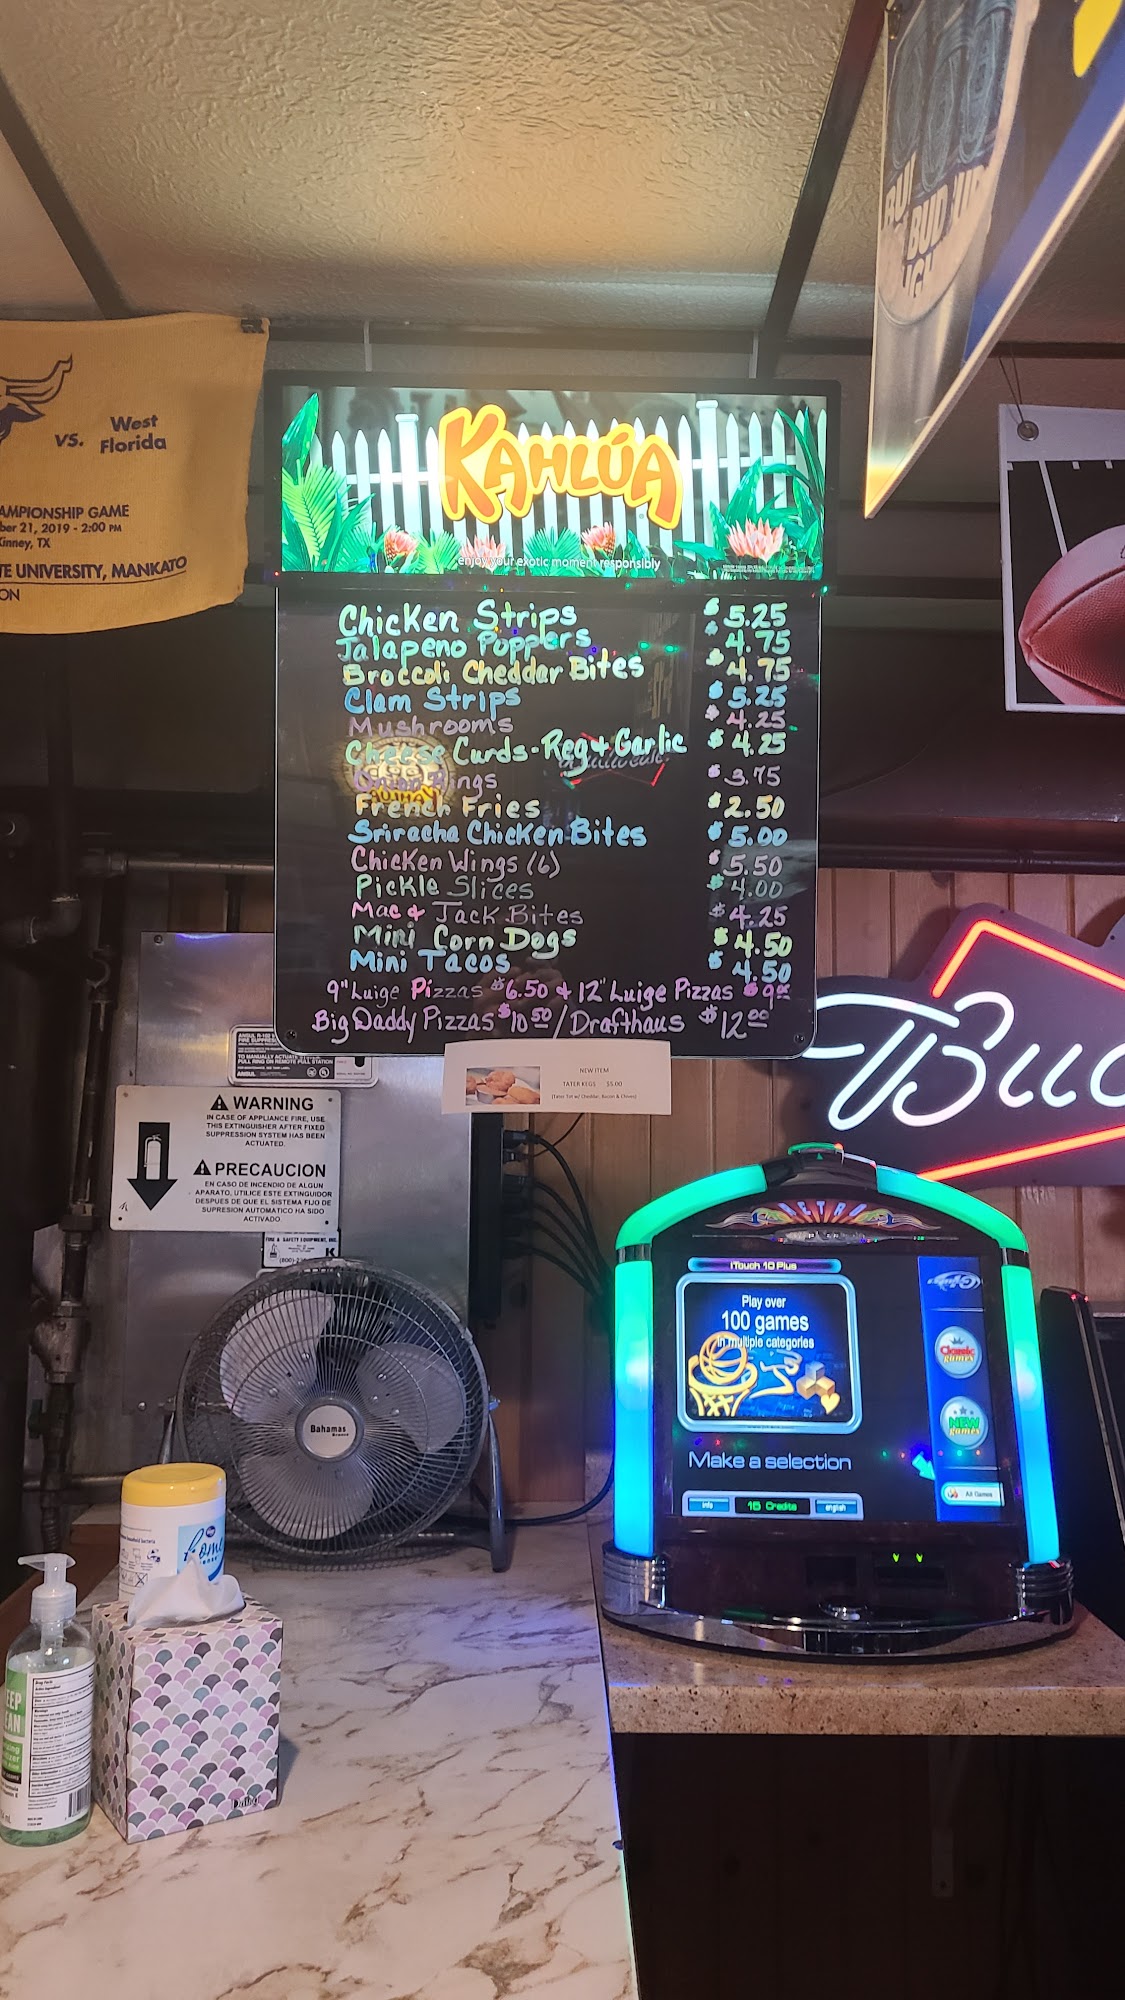 BUD
LIGHT
BUD LIGHT
West
VS. Florida
AMPIONSHIP GAME
ber 21, 2019 - 2:00 PM
Kinney, TX
TE UNIVERSITY, MANKATO
ON
KAHLÚA
enjoy your exotic moment responsibly
Chicken Strips $5.25
Jalapeno Poppers $4.75
Broccoli Cheddar Bites $4.75
Clam Strips $5.25
Mushrooms $4.25
Cheese Curds-Reg + Garlic $4.25
Onion Rings $3.75
French Fries $2.50
Sriracha Chicken Bites $5.00
Chicken Wings (6) $5.50
Pickle Slices $4.00
Mac & Jack Bites $4.25
Mini Corn Dogs $4.50
Mini Tacos $4.50
9" Luige Pizzas $6.50 + 12" Luige Pizzas $9.00
Big Daddy Pizzas $10.50 / Drafthaus $12.00
NEW ITEM
TATER KEGS $5.00
(Tater Tot w/ Cheddar, Bacon & Chives)
ANSUL R-102
FIRE SUPPRESS
TO MANUALLY ACTUATE
PULL RING ON REMOTE PULL STATION
ANSUL
WARNING
IN CASE OF APPLIANCE FIRE, USE
THIS EXTINGUISHER AFTER FIXED
SUPPRESSION SYSTEM HAS BEEN
ACTUATED.
PRECAUCION
EN CASO DE INCENDIO DE ALGUN
APARATO, UTILICE ESTE EXTINGUIDOR
DESPUES DE QUE EL SISTEMA FIJO DE
SUPRESION AUTOMATICO HA SIDO
ACTIVADO
FIRE & SAFETY EQUIPMENT, INC.
K
Bud
RETRO
iTouch 10 Plus
Play over
100 games
in multiple categories
Classic
games
NEW
games
Make a selection
All Games
info 16 Credits english
Bahamas
home
EEP
EAN
Drug Facts